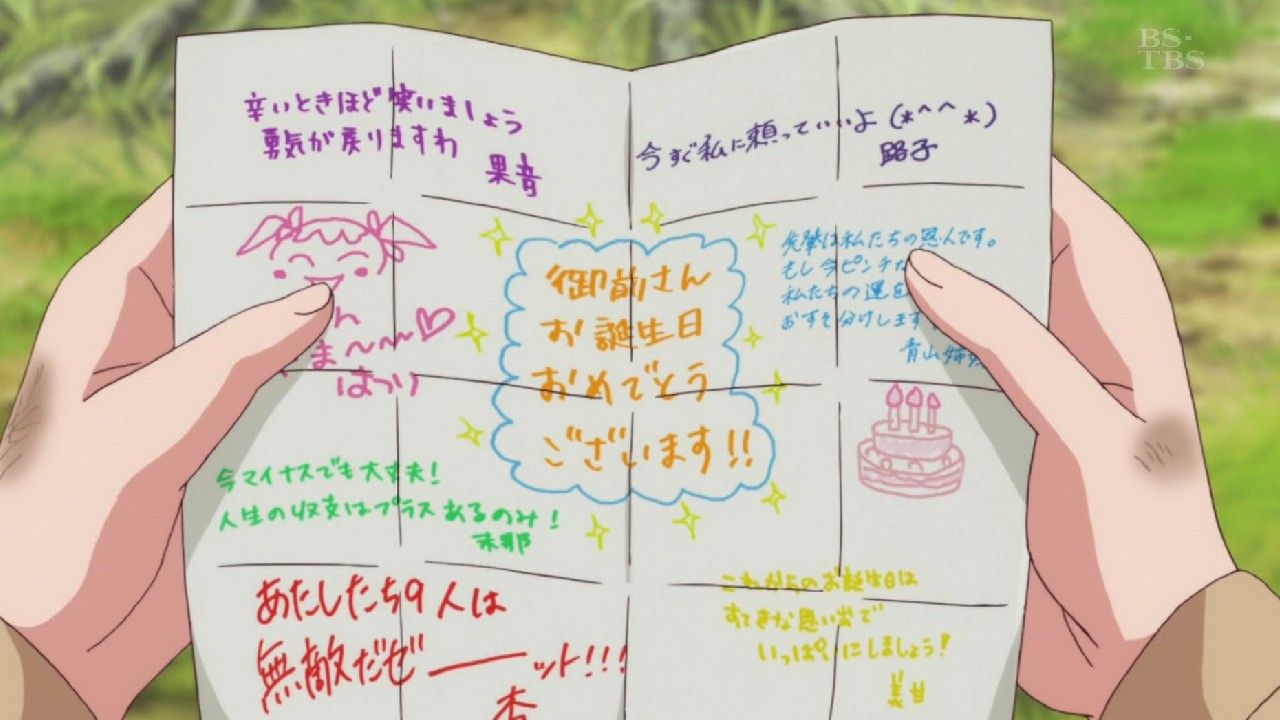 BS-
TBS
辛いときほど笑いましょう
勇気が戻りますわ
果音
今すぐ私に頼っていいよ (*^^*)
路子
御前さん
お誕生日
おめでとう
ございます!!
先輩は私たちの恩人です。
もし今ピンチ
私たちの運
おすそ分けします
青山姉妹
ん
ま〜〜〜♡
はつり
今マイナスでも大丈夫!
人生の収支はプラスあるのみ!
未那
あたしたち9人は
無敵だぜーーット!!!
杏
これからのお誕生日は
すてきな思い出で
いっぱいにしましょう!
美甘